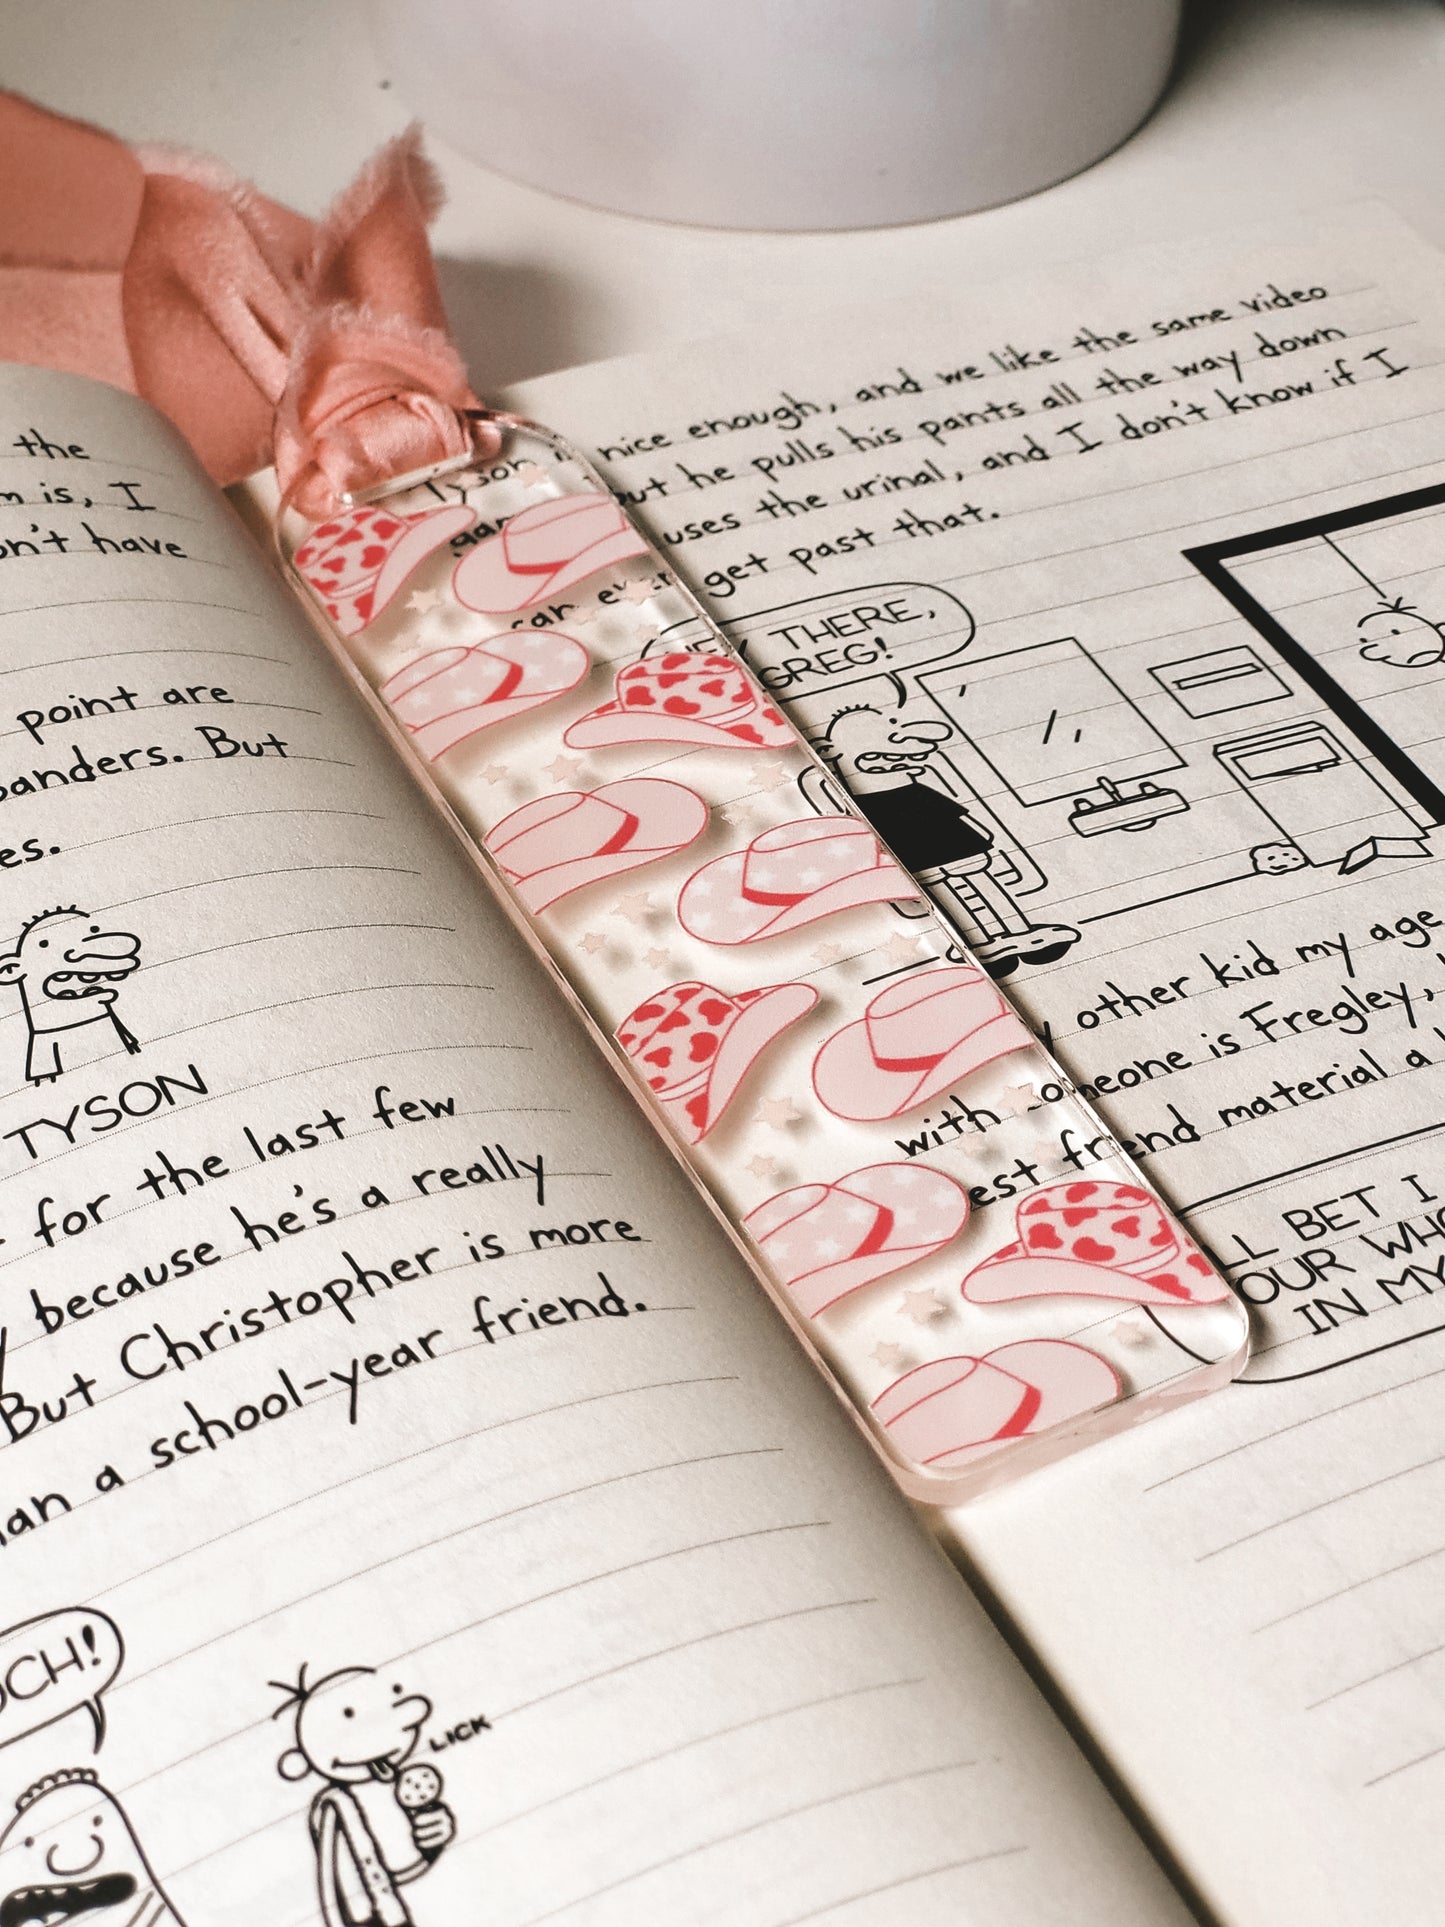 the
is, I
have
point are
But
es.
TYSON
for the last few
because he's a really
But Christopher is more
a school-year friend.
OCH!
LICK
Tyson is nice enough, and we like the same video
but he pulls his pants all the way down
uses the urinal, and I don't know if I
can ever get past that.
HEY THERE,
GREG!
other kid my age
with someone is Fregley,
est friend material a
BET I
IN MY